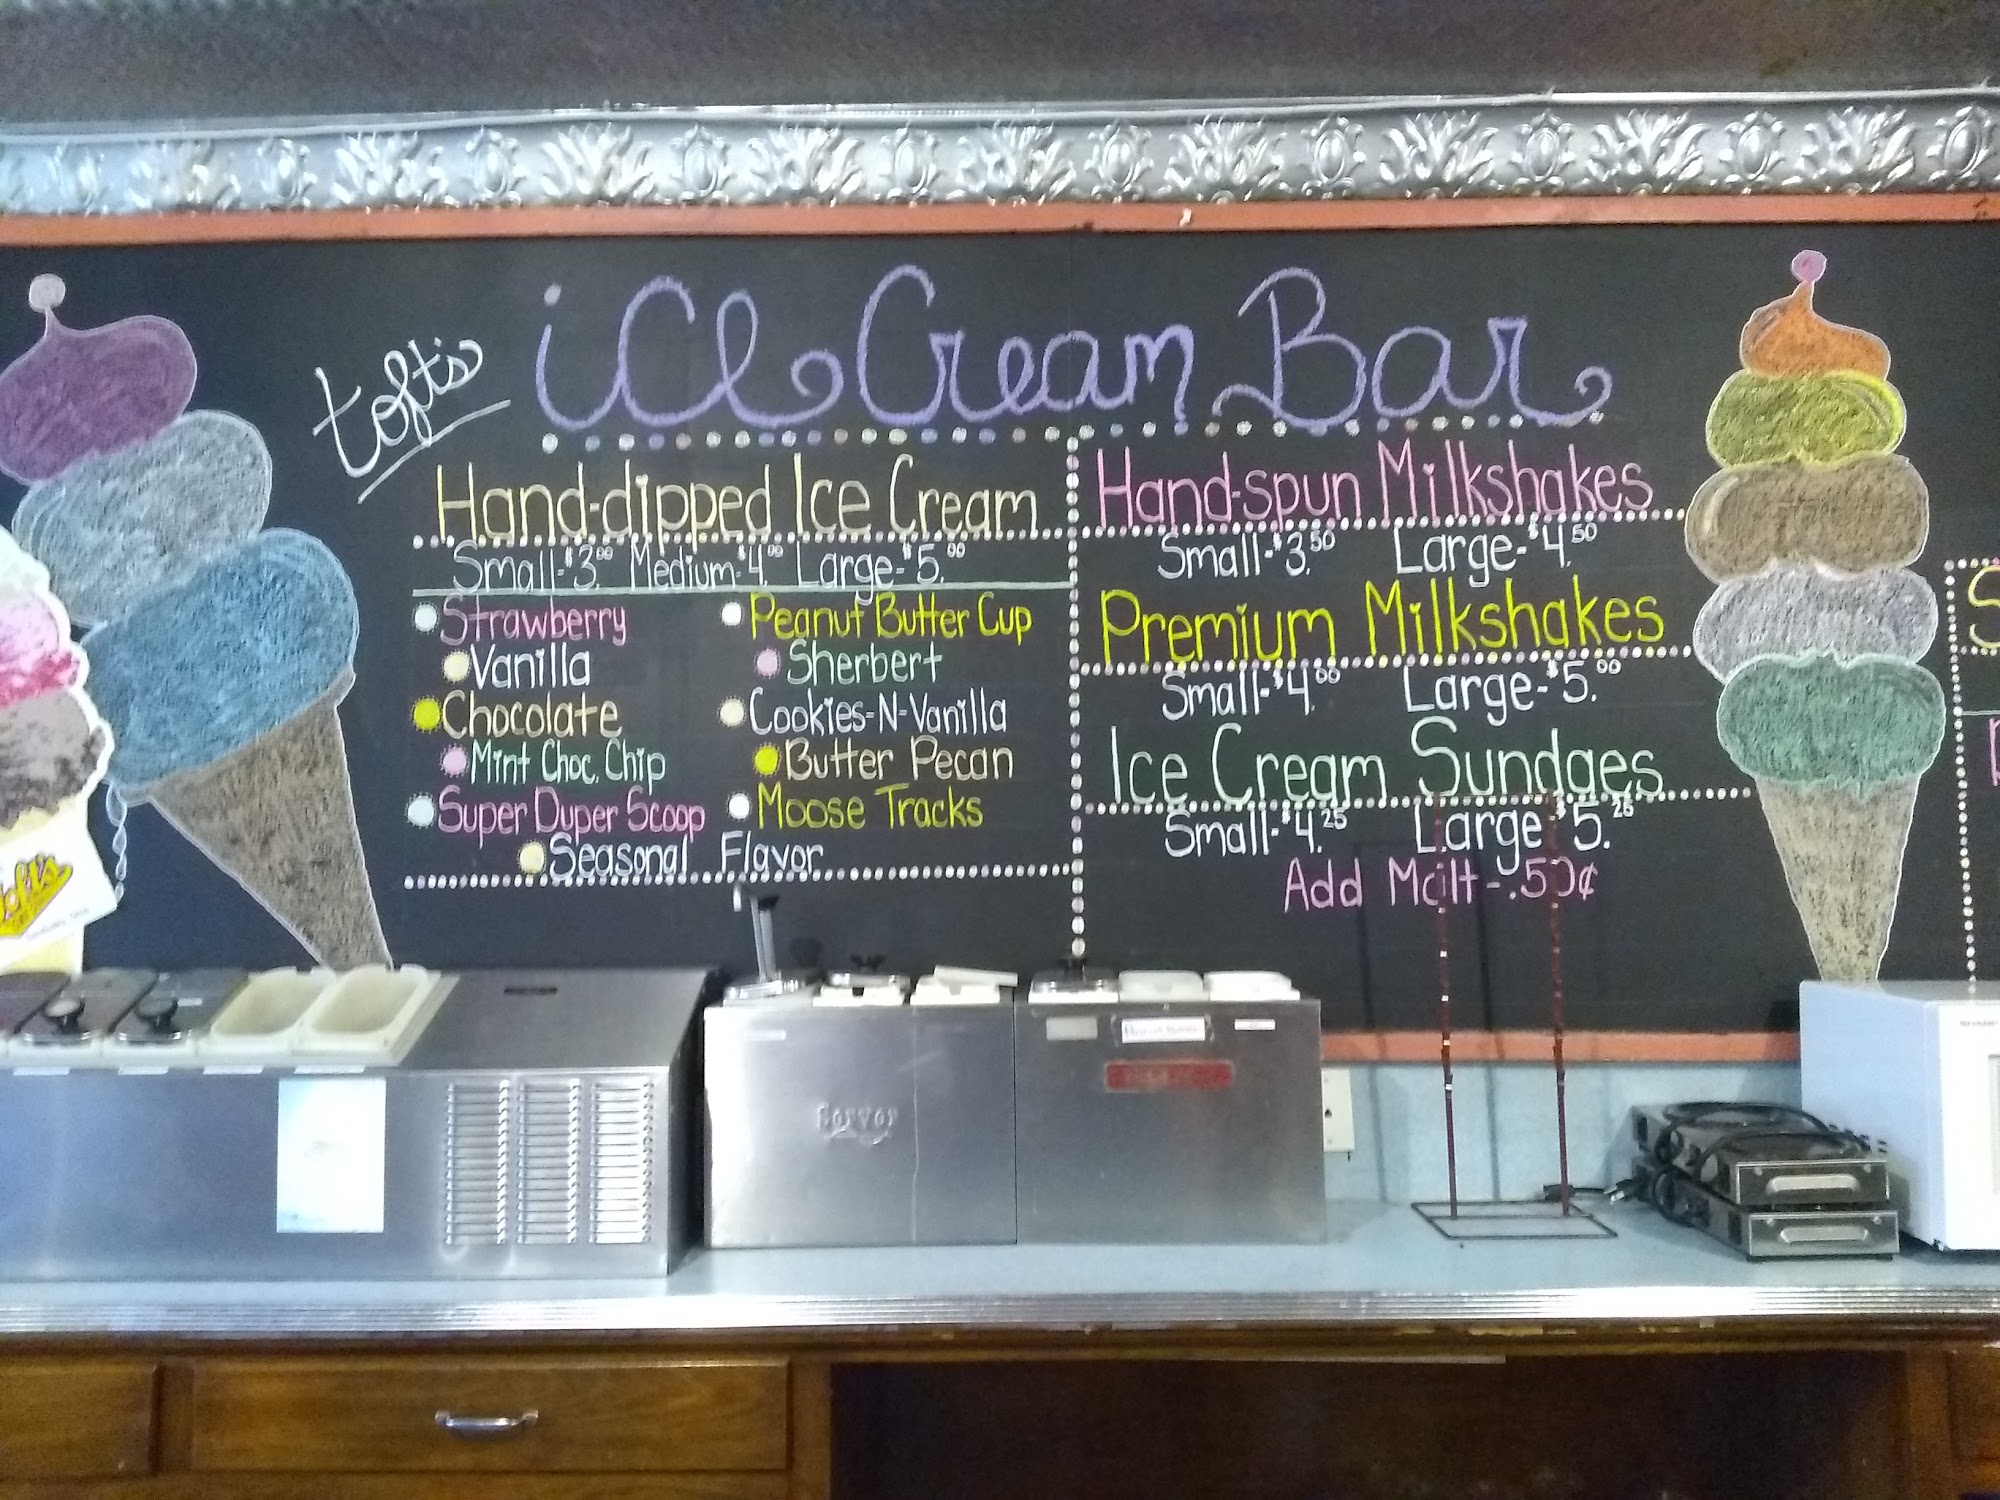 Toft's
Ice Cream Bar
Hand-dipped Ice Cream
Small-$3.00 Medium-$4.00 Large-$5.00
Strawberry
Vanilla
Chocolate
Mint Choc. Chip
Super Duper Scoop
Peanut Butter Cup
Sherbert
Cookies-N-Vanilla
Butter Pecan
Moose Tracks
Seasonal Flavor
Hand-spun Milkshakes
Small-$3.50 Large-$4.50
Premium Milkshakes
Small-$4.00 Large-$5.00
Ice Cream Sundaes
Small-$4.25 Large $5.25
Add Malt-.50¢
Toft's
Server